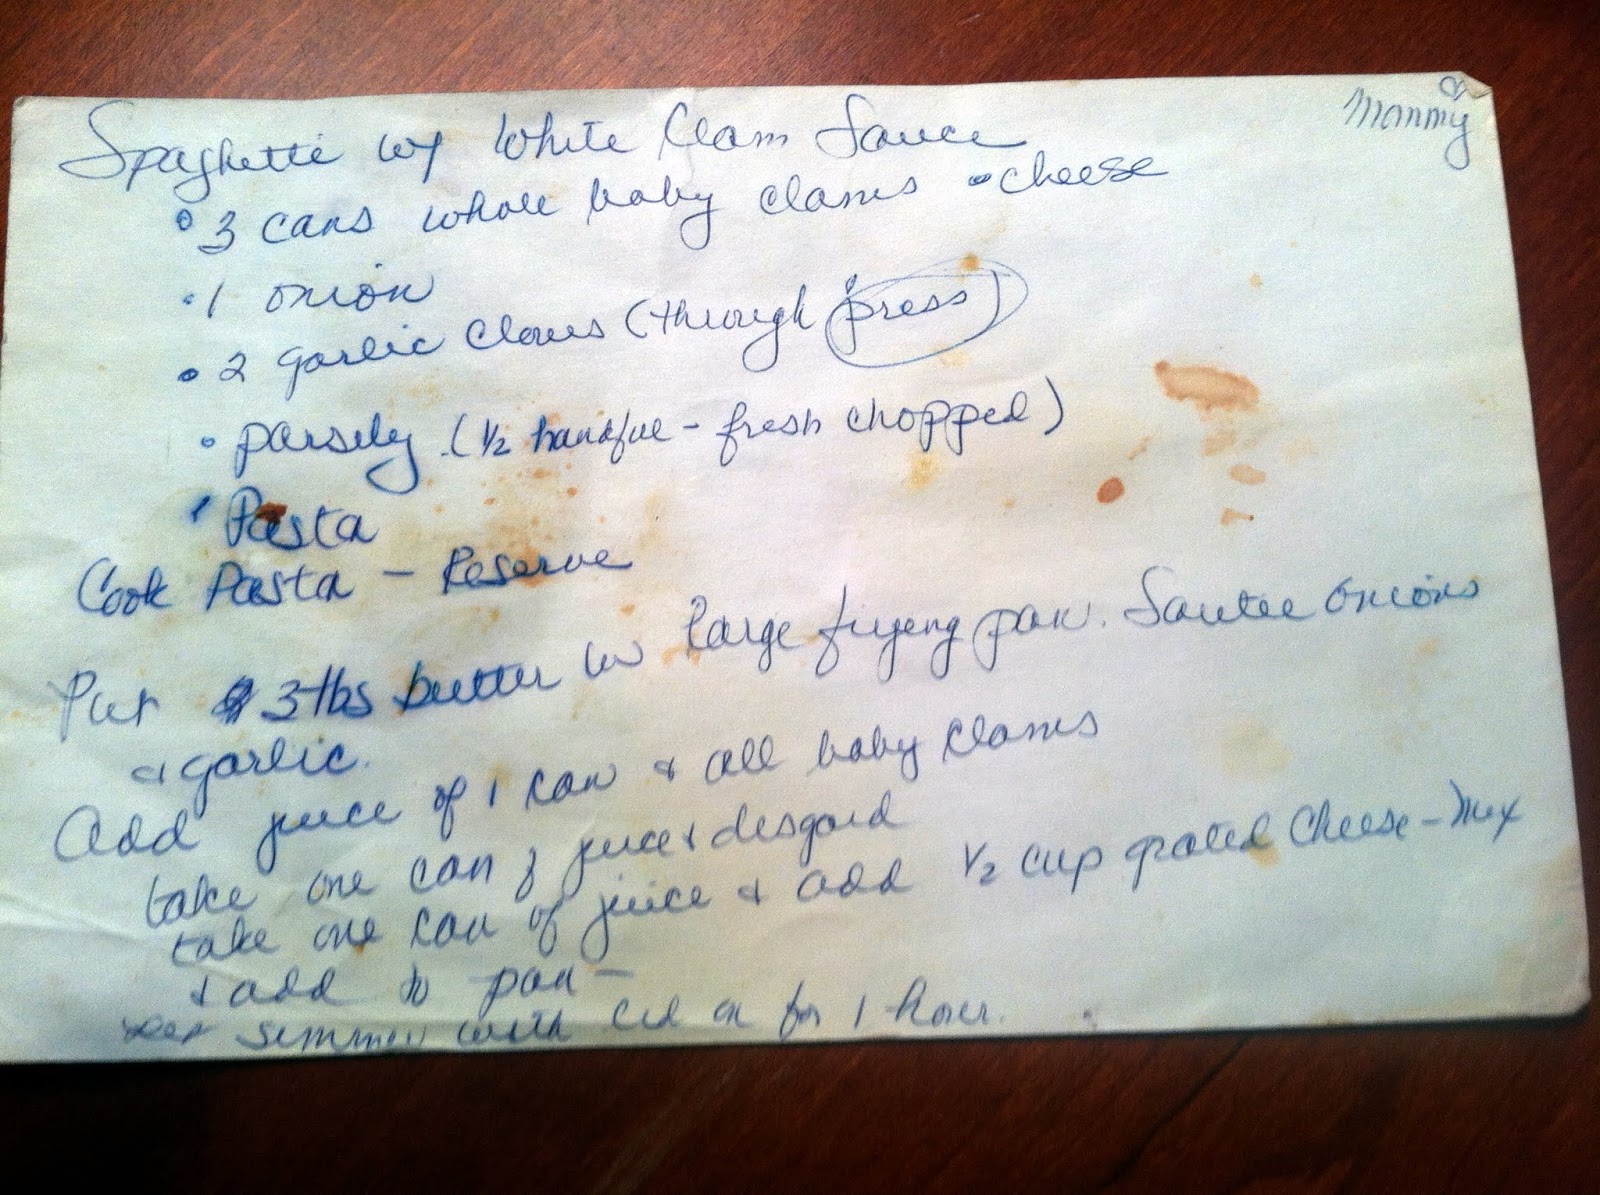 Mommy
Spaghettie w/ White Clam Sauce
• 3 cans whole baby clams • cheese
• 1 onion
• 2 garlic cloves (through press)
• parsely (1/2 handful - fresh chopped)
• Pasta
Cook Pasta - Reserve
Put 3 tbs butter in large frying pan. Sautee onions
& garlic.
Add juice of 1 can & all baby clams
take one can of juice & disgard
take one can of juice & add 1/2 cup grated cheese - Mix
& add to pan -
Let simmer with lid on for 1 hour.